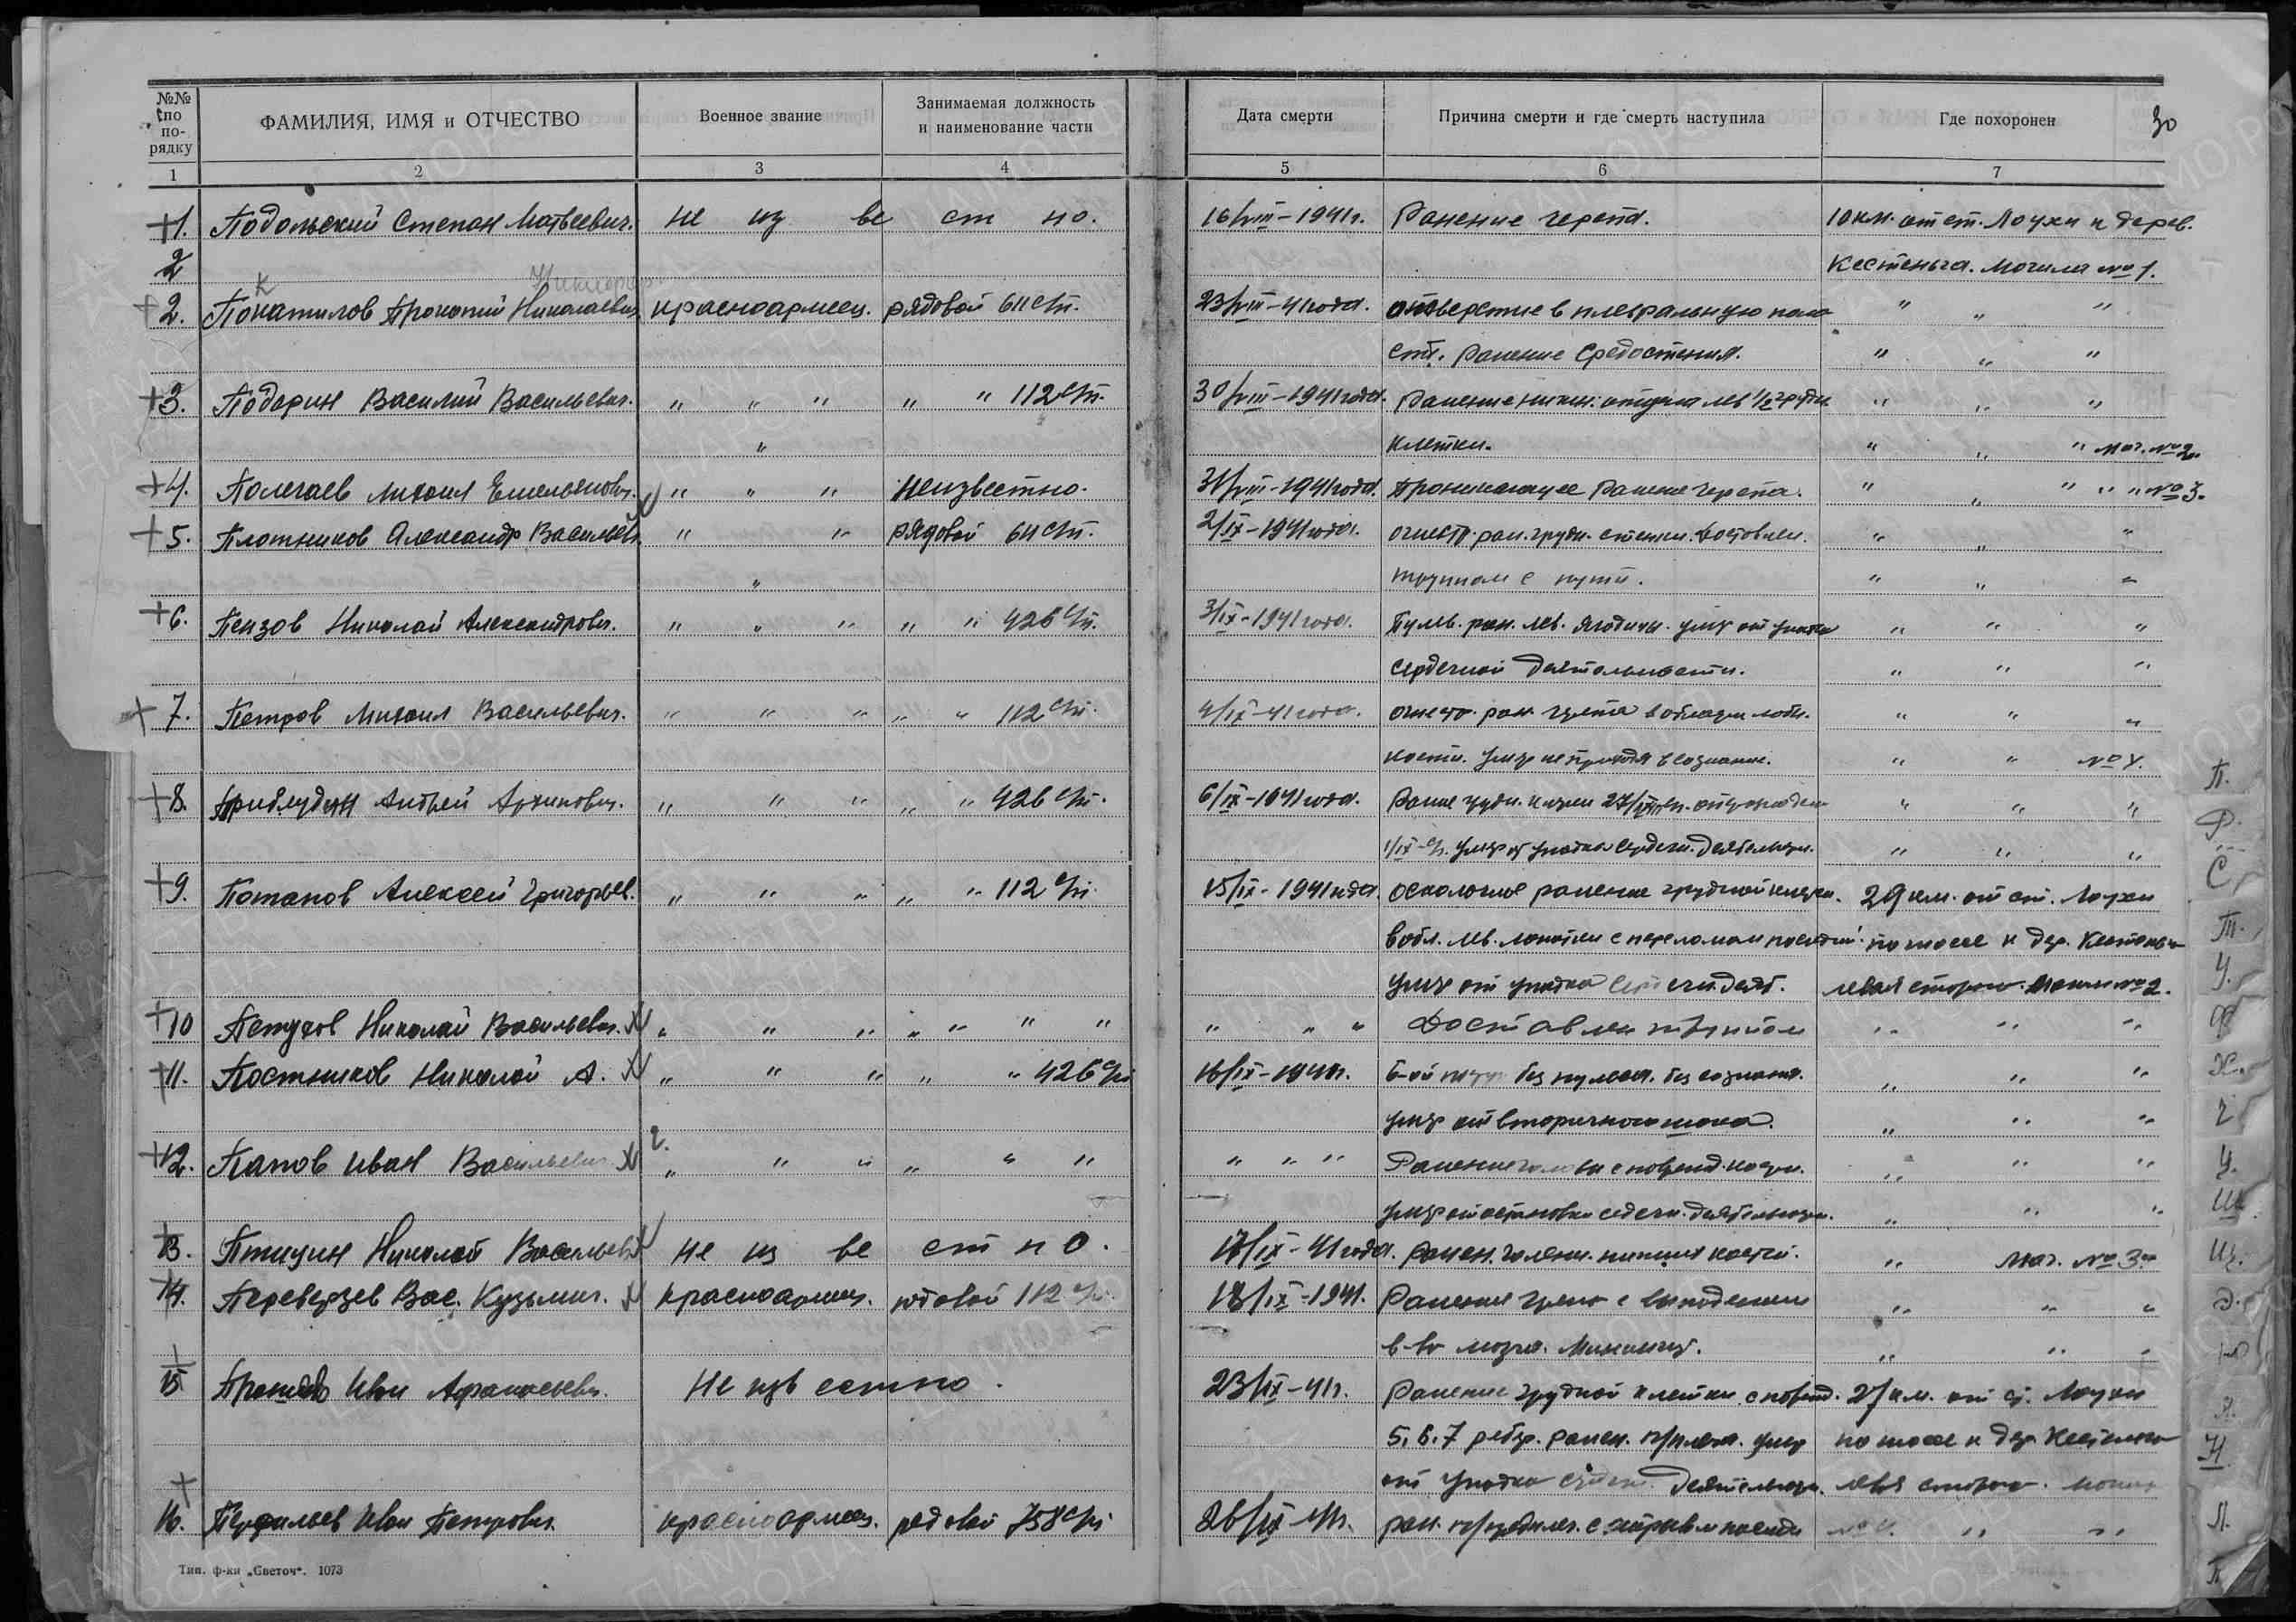 №№ по по-рядку ФАМИЛИЯ, ИМЯ и ОТЧЕСТВО Военное звание Занимаемая должность и наименование части Дата смерти Причина смерти и где смерть наступила Где похоронен 30
1 2 3 4 5 6 7
+1. Подольский Степан Матвеевич. не из ве ст но. 16/VIII-1941г. Ранение черепа. 10 км. от ст. Лоухи к дерев.
2 Кестеньга. Могила №1.
К Никифор
+2. Покатилов Прокопий Николаевич красноармеец. рядовой 611 с/п. 23/VIII-41 года. отверстие в плевральную поло " " "
сть. Ранение средостения. " " "
+3. Подорин Василий Васильевич. " " " " " 112 с/п. 30/VIII-1941 года. Ранение нижн. отдела лев 1/2 грудн. " " "
" клетки. " " " мог. №2.
+4. Полегаев Михаил Емельянович. " " " Неизвестно. 31/VIII-1941 года. Проникающее ранение черепа. " " " " " №3.
+5. Плотников Александр Васильев. " " рядовой 611 с/п. 2/IX-1941 года. огнестр. ран. грудн. стенки. Доставлен. " " "
" трупом с пути. " " "
+6. Пензов Николай Александрович. " " " " " 426 с/п. 3/IX-1941 года. Пулев. ран. лев. ягодицы. умер от упадка " " "
сердечной деятельности. " " "
+7. Петров Михаил Васильевич. " " " " " 112 с/п. 4/IX-41 года. огнестр. ран. черепа в области лобн. " " "
кости. Умер не приходя в сознание. " " №4.
+8. Приблудин Андрей Архипович. " " " " " 426 с/п. 6/IX-1941 года. Ранен грудн. клетки 27/VIII " " "
1/IX умер от упадка сердечн. деятельн. " " "
+9. Потапов Алексей Григорьев. " " " " " 112 с/п. 15/IX-1941 года. осколочное ранение грудной клетки. 29 км. от ст. Лоухи
в обл. лев. лопатки с переломом последней. по шоссе к дер. Кестеньга
умер от упадка сердечн. деят. левая сторона. Могила №2.
+10 Петухов Николай Васильевич. " " " " " " " " " " Доставлен трупом " " "
+11. Постников Николай А. " " " " " 426 с/п 16/IX-1941г. без пульса. без сознания. " " "
умер от вторичного шока. " " "
2.
+12. Папов Иван Васильевич " " " " " " " " " Ранение головы с поврежд. кости. " " "
умер от остановки сердечн. деятельности. " " "
+13. Птицин Николай Васильевич Не из ве ст но. 17/IX-41 года. Ранен. голени. нижних костей. " мог. №3.
+14. Переверзев Вас. Кузьмич. красноармеец. рядовой 112 с/п. 18/IX-1941. Ранение черепа с выпадением " " "
в-во мозга. " " "
+15 Иван Афанасьевич. Не известно. 23/IX-41г. Ранение грудной клетки с поврежд. 27 км. от ст. Лоухи
5, 6, 7 ребер. ранен. умер по шоссе к дер. Кестеньга
от упадка сердечн. деятельности. левая сторона. могила
+16. Перфильев Иван Петрович. красноармеец. рядовой 758 с/п 26/IX-41г. ран. " "
Тип. ф-ки „Светоч“. 1073
П.
Р.
С.
Т.
У.
Ф
Х.
Ч
Ц.
Ш
Щ.
Э.
Ю
Я.
Н
Л.
П